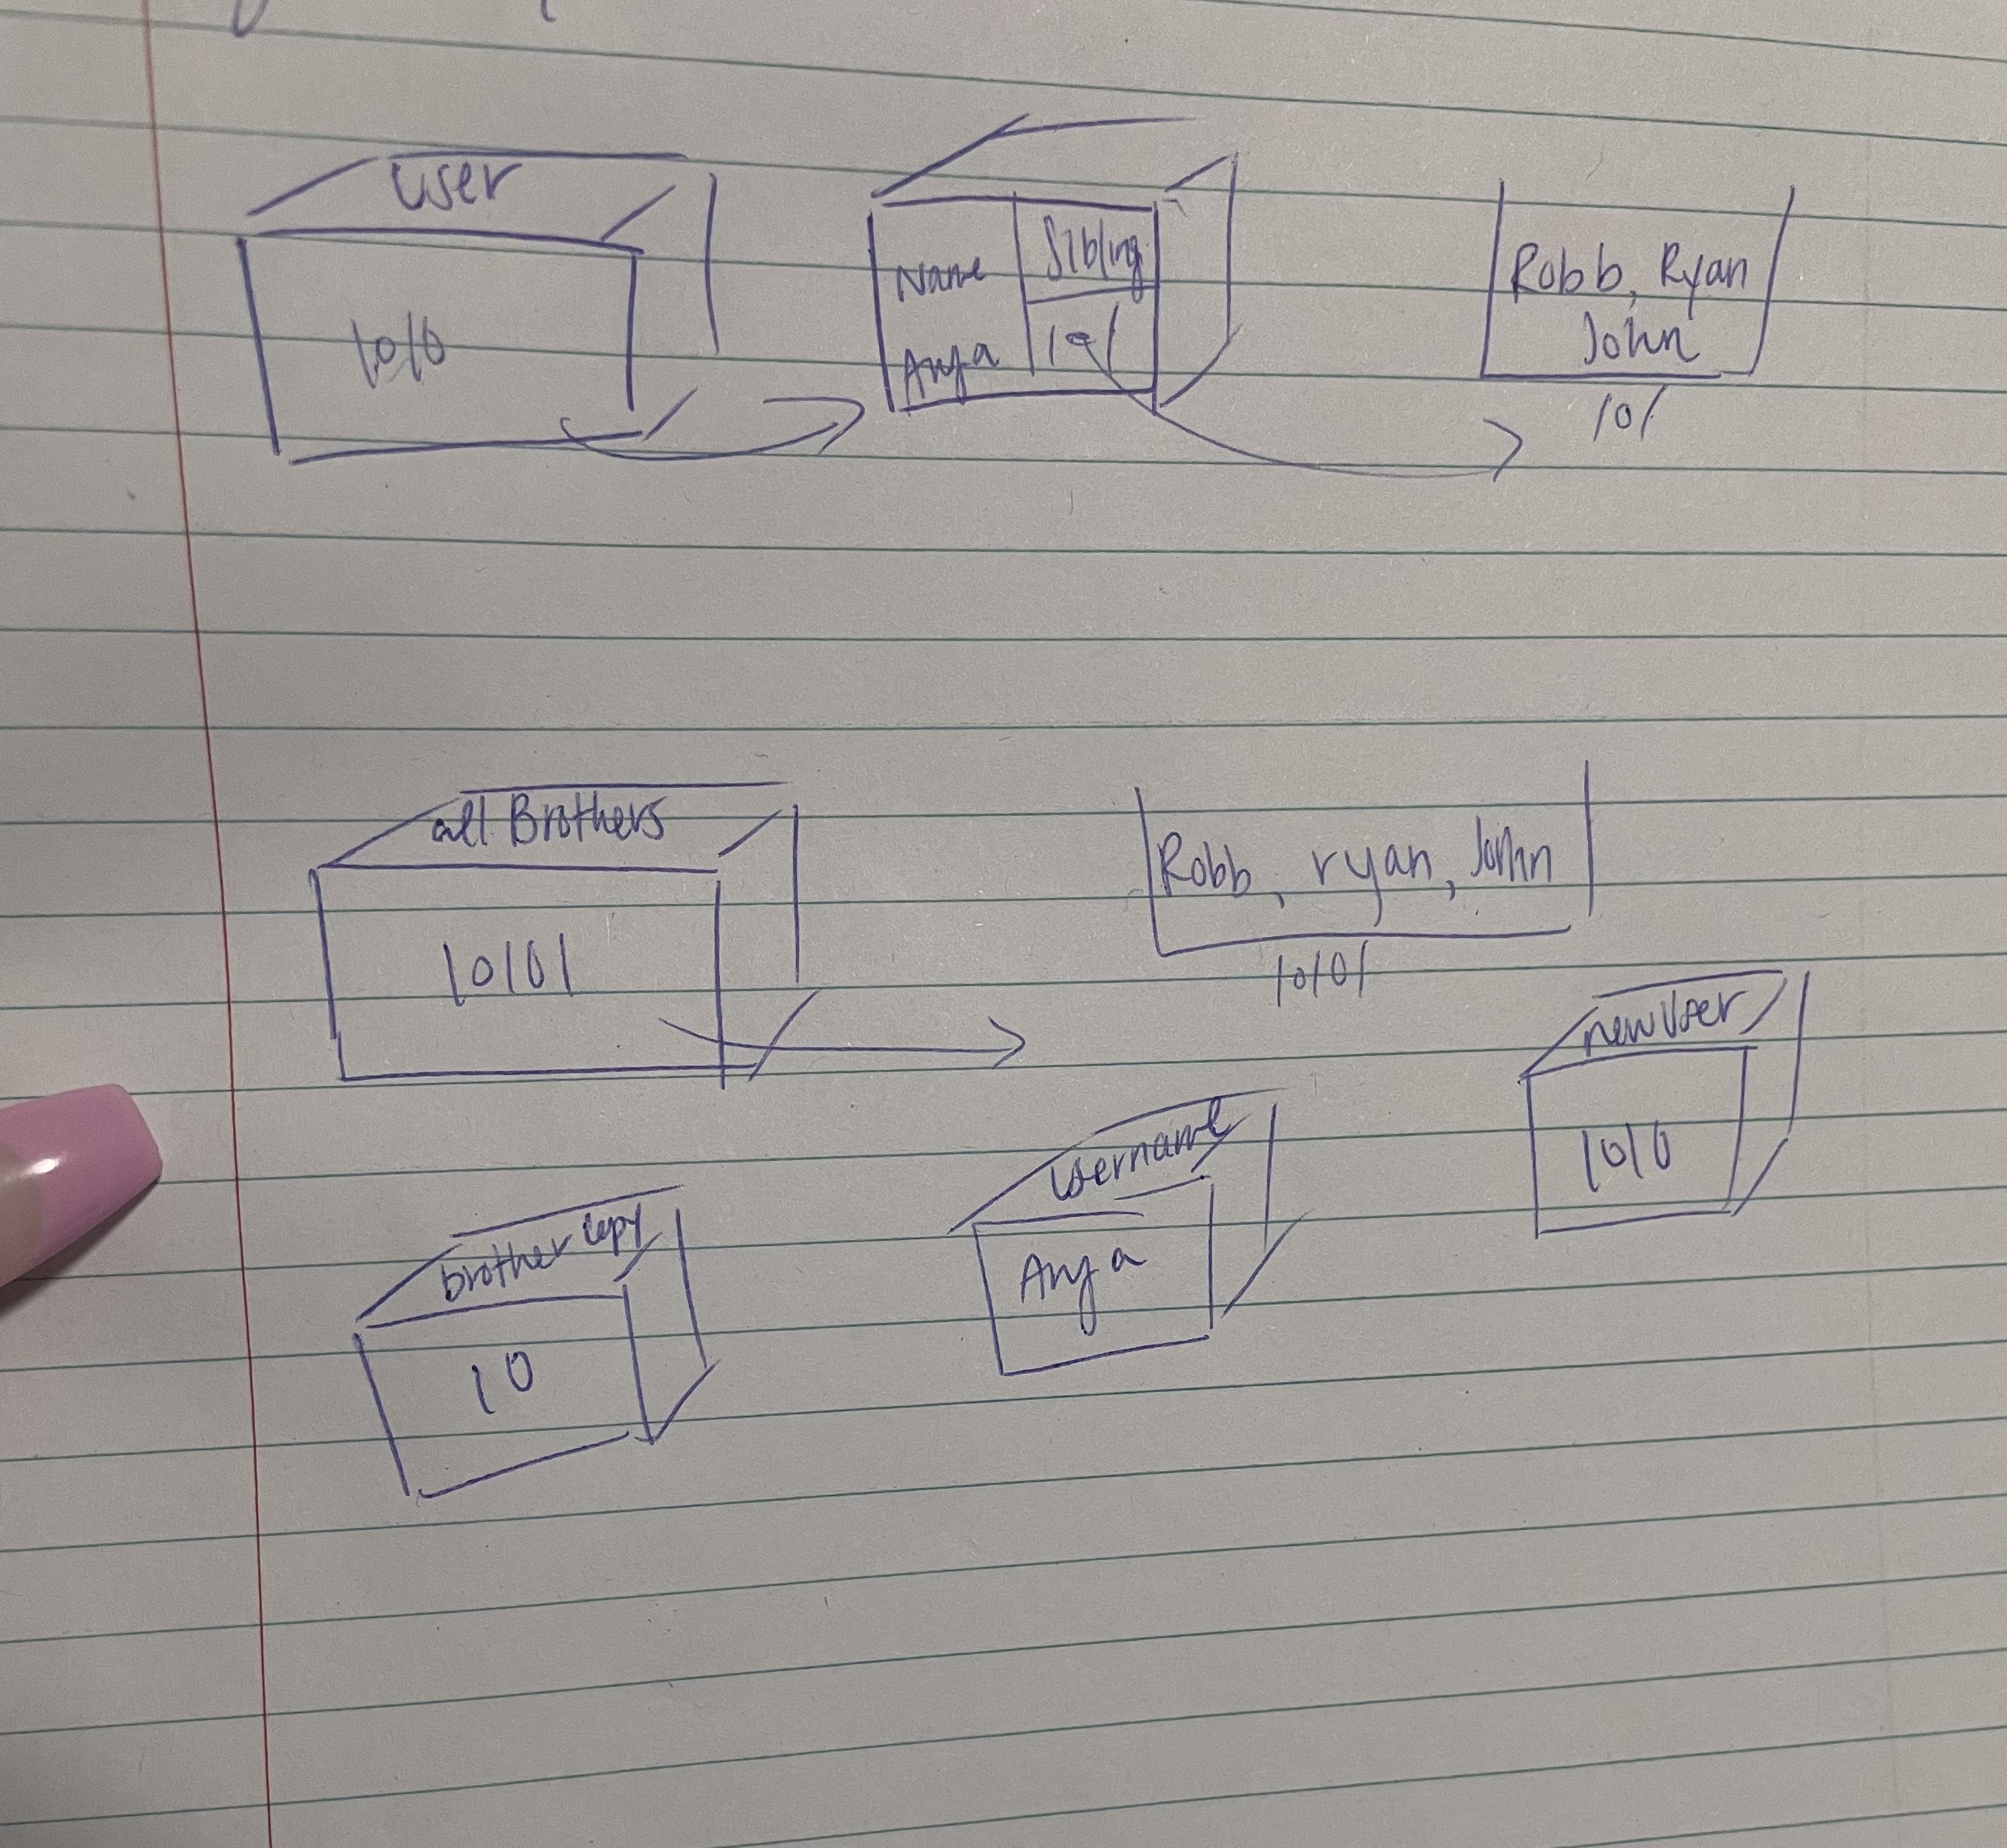 user
1010
Name
Sibling
Anya
101
Robb, Ryan
John
101
all Brothers
10101
Robb, ryan, John
10101
newUser
1010
username
Anya
brother copy
10